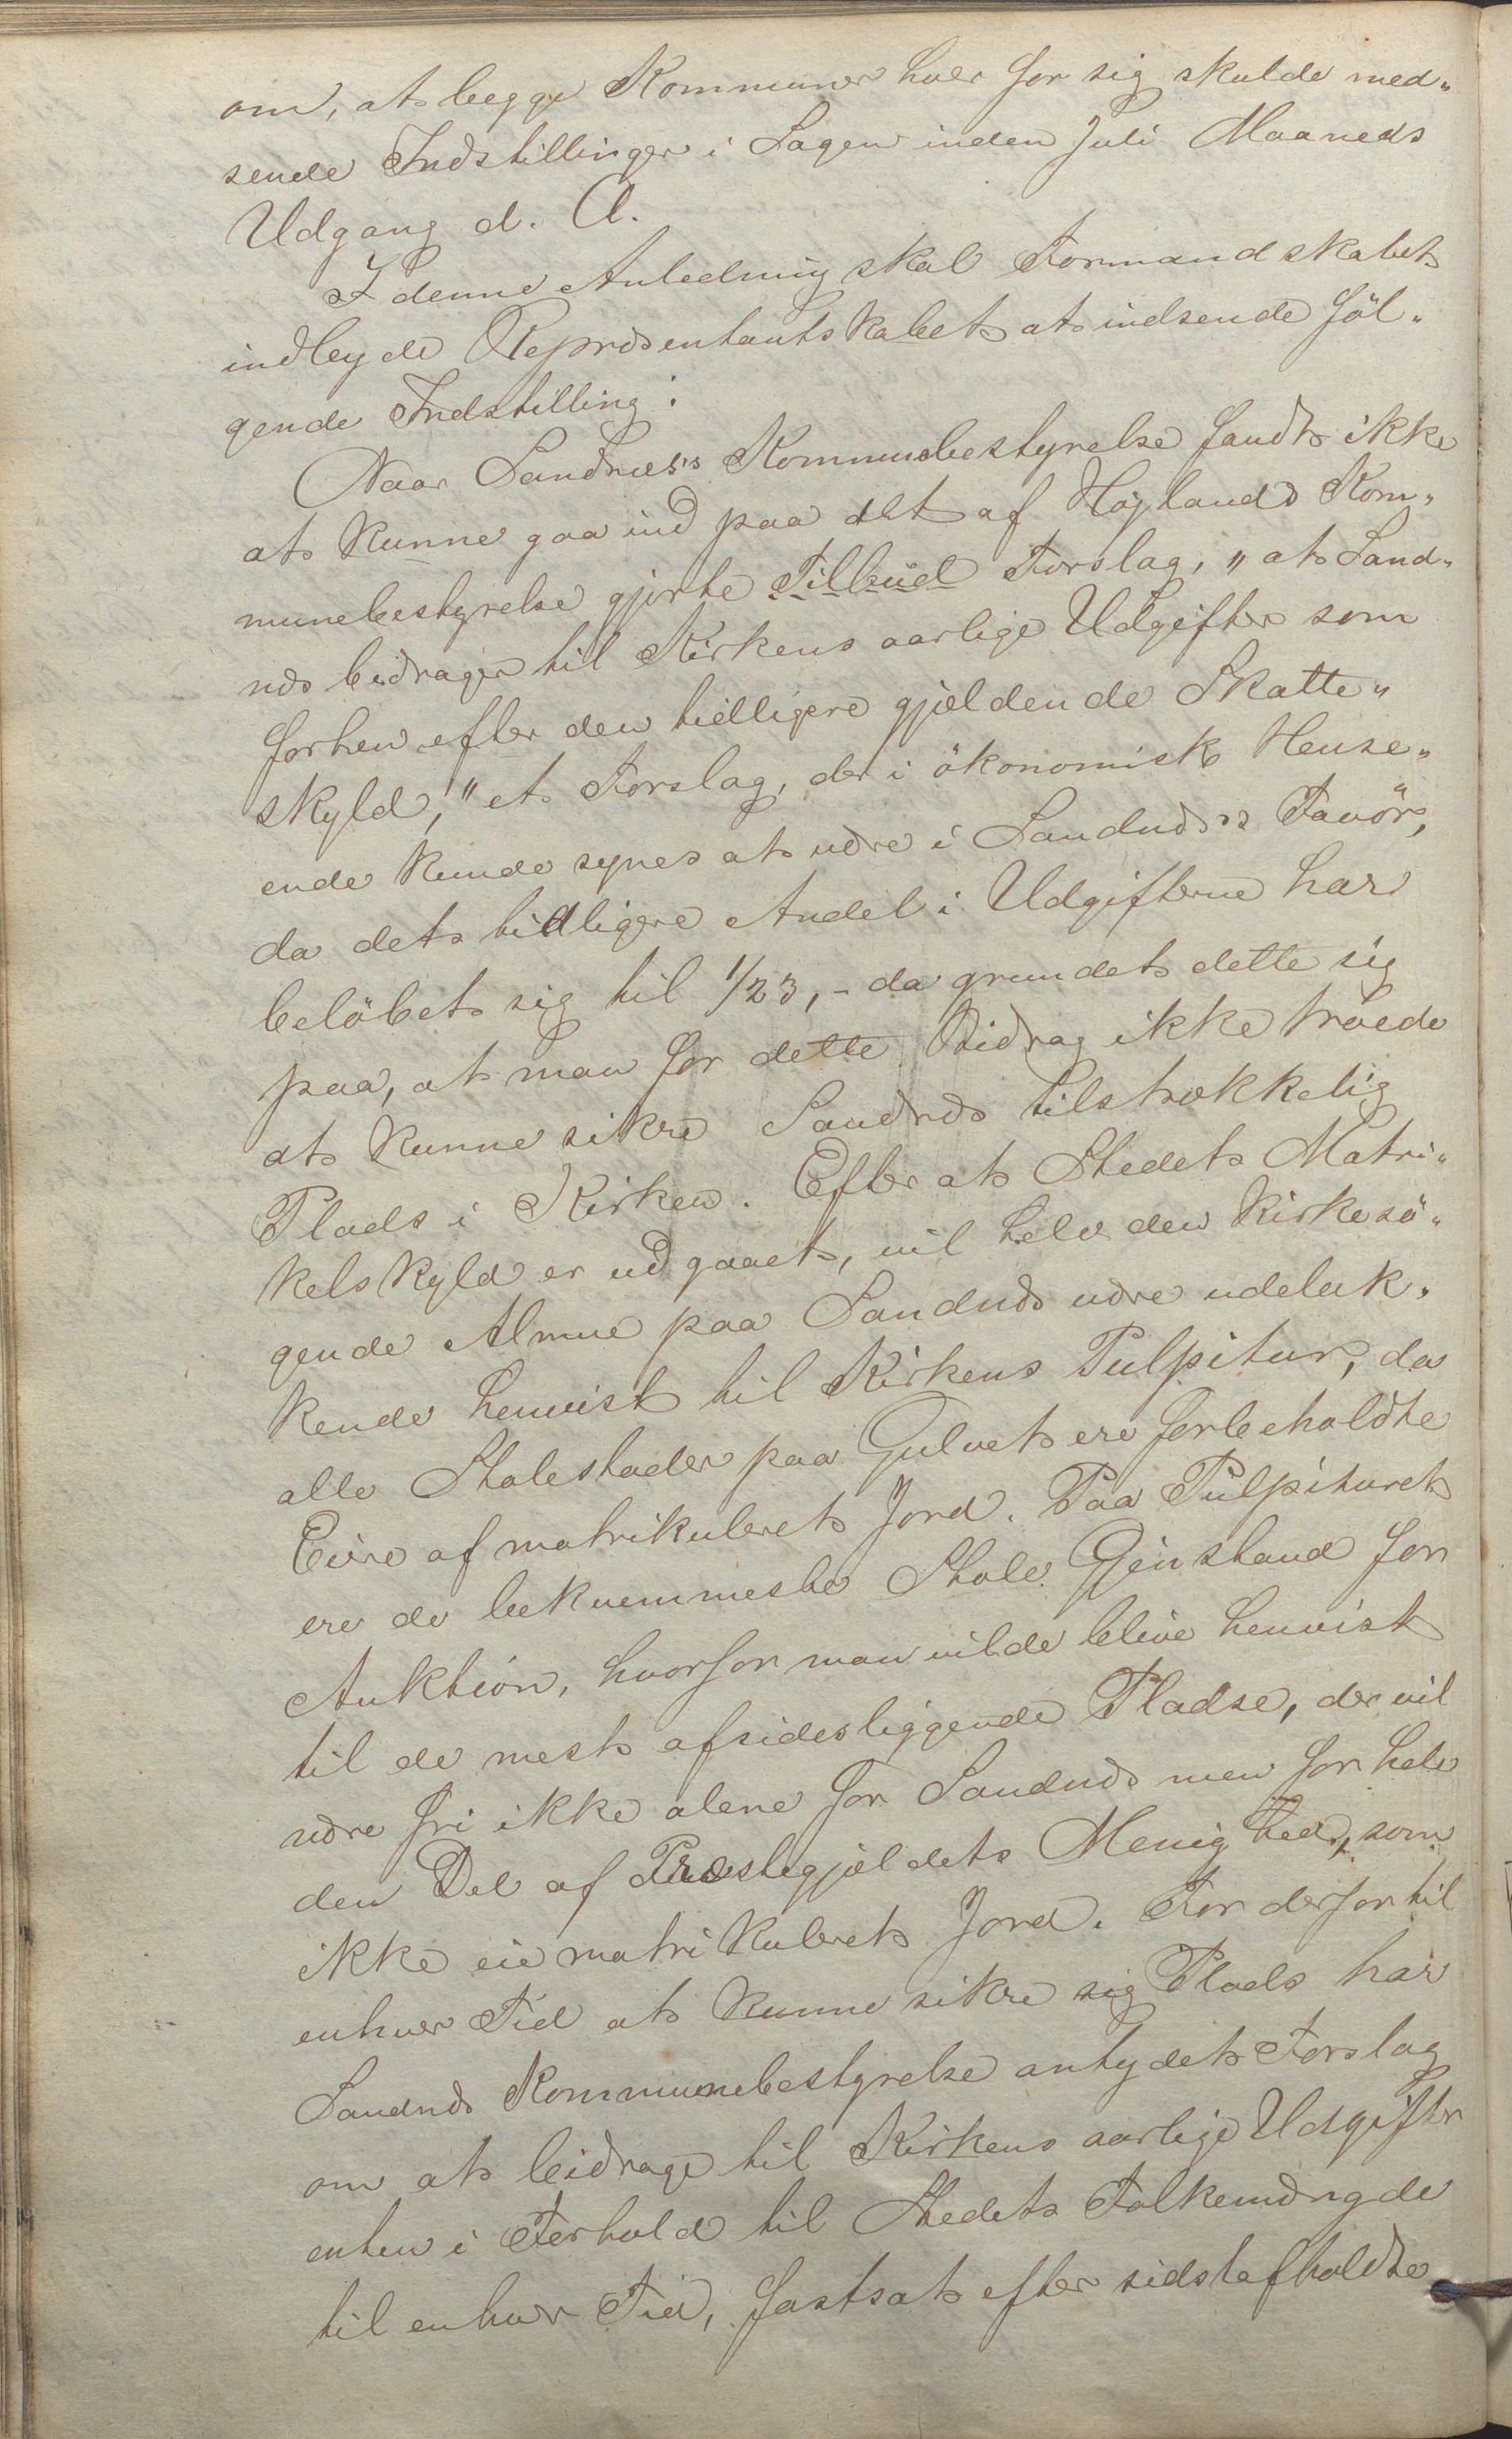 om, at begge Kommuner hver for sig skulde med„
sende Indstillinger i Sagen inden Juli Maaneds
Udgang d. A.
I denne Anledning skal Formandskabet
indbyde Repræsentantskabet at indsende föl„
gende Indstilling:
Naar Sandnæs's Kommunebestyrelse fandt ikke
at kunne gaa ind paa det af Højlands Kom„
munebestyrelse gjorte Tilbud Forslag, „at Sand„
næs bidrager til Kirkens aarlige Udgifter som
forhen efter den tidligere gjældende Skatte„
skyld," et Forslag, der i ökonomisk Hense„
ende kunde synes at være i Sandnæs's Favör,
da dets tidligere Andel i Udgifterne har
belöbet sig til 1/23, - da grundet dette sig
paa, at man for dette Bidrag ikke troede
at kunne sikre Sandnæs tilstrækkelig
Plads i Kirken. Efter at Stedets Matri„
kelskyld er udgaaet, vil hele den kirkesö„
gende Almue paa Sandnæs være udeluk„
kende henvist til Kirkens Pulpitur, da
alle Stolestader paa Gulvet ere forbeholdte
Eiere af matrikuleret Jord. Paa Pulpituret
ere de bekvemmeste Stole Gjenstand for
Auktion, hvorfor man vilde blive henvist
til de mest afsidesliggende Pladse, der vil
være fri ikke alene for Sandnæs men for hele
den Del af Præstegjældets Menighed, som
ikke eie matrikuleret Jord. For derfor til
enhver Tid at kunne sikre sig Plads har
Sandnæs Kommunebestyrelse antydet Forslag
om at bidrage til Kirkens aarlige Udgifter
enten i Forhold til Stedets Folkemængde
til enhver Tid, fastsat efter sidst afholdte